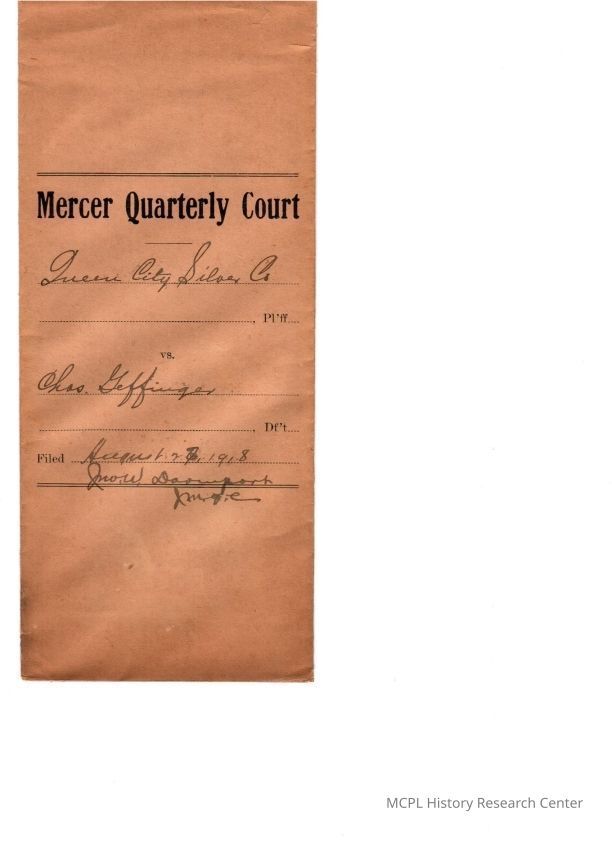 Mercer Quarterly Court
Queen City Silver Co
, Pl'ff....
vs.
Chas. Geffinger
, Df't....
Filed August 26, 1918
Jno. W. Davenport
MCPL History Research Center